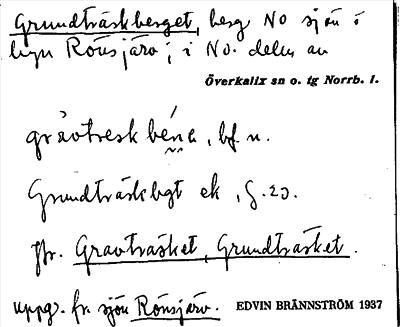 Grundträskberget, berg NO sjön i
byn Rönsjärv; i NO. delen av
Överkalix sn o. tg Norrb. l.
gråvtresk bérɛ, bf. n.
Grundträskbgt ek, g. 23.
Jfr. Gravträsket, Grundträsket.
uppg. fr. sjön Rönsjärv. EDVIN BRÄNNSTRÖM 1937